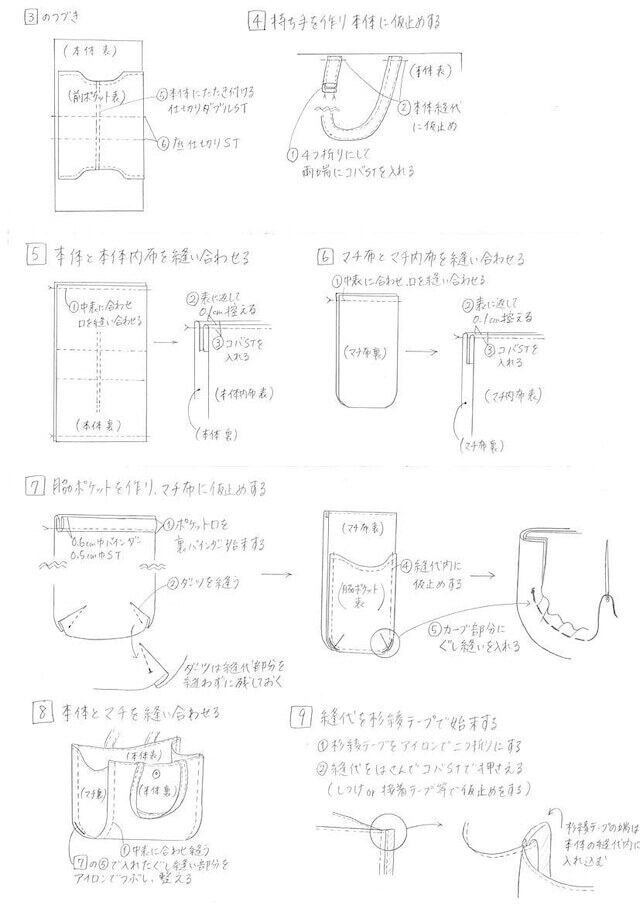 3 のつづき
(本体 表)
(前ポケット表)
⑤本体にたたき付ける
仕切りダブルST
⑥ 仕切りST
4 持ち手を作り 本体に仮止めする
(本体表)
②本体縫代
に仮止め
①4つ折りにして
両端にコバSTを入れる
5 本体と本体内布を縫い合わせる
①中表に合わせ
口を縫い合わせる
(本体 裏)
②表に返して
0.1cm控える
③コバSTを
入れる
(本体内布表)
(本体 裏)
6 マチ布とマチ内布を縫い合わせる
①中表に合わせ、口を縫い合わせる
(マチ布裏)
②表に返して
0.1cm控える
③コバSTを
入れる
(マチ内布表)
(マチ布裏)
7 脇ポケットを作り、マチ布に仮止めする
0.6cm巾バインダー
0.5cm巾ST
①ポケット口を
裏バインダー始末する
②ダーツを縫う
ダーツは縫代部分を
縫わずに残しておく
(マチ布表)
(脇ポケット
表)
④縫代内に
仮止めする
⑤カーブ部分に
ぐし縫いを入れる
8 本体とマチを縫い合わせる
(本体表)
(マチ裏)
(本体裏)
①中表に合わせ縫う
7の⑤で入れたぐし縫い部分を
アイロンでつぶし、整える
9 縫代を杉綾テープで始末する
①杉綾テープをアイロンで二つ折りにする
②縫代をはさんでコバSTで押さえる
(しつけor接着テープ等で仮止めをする)
杉綾テープの端は
本体の縫代内に
入れ込む